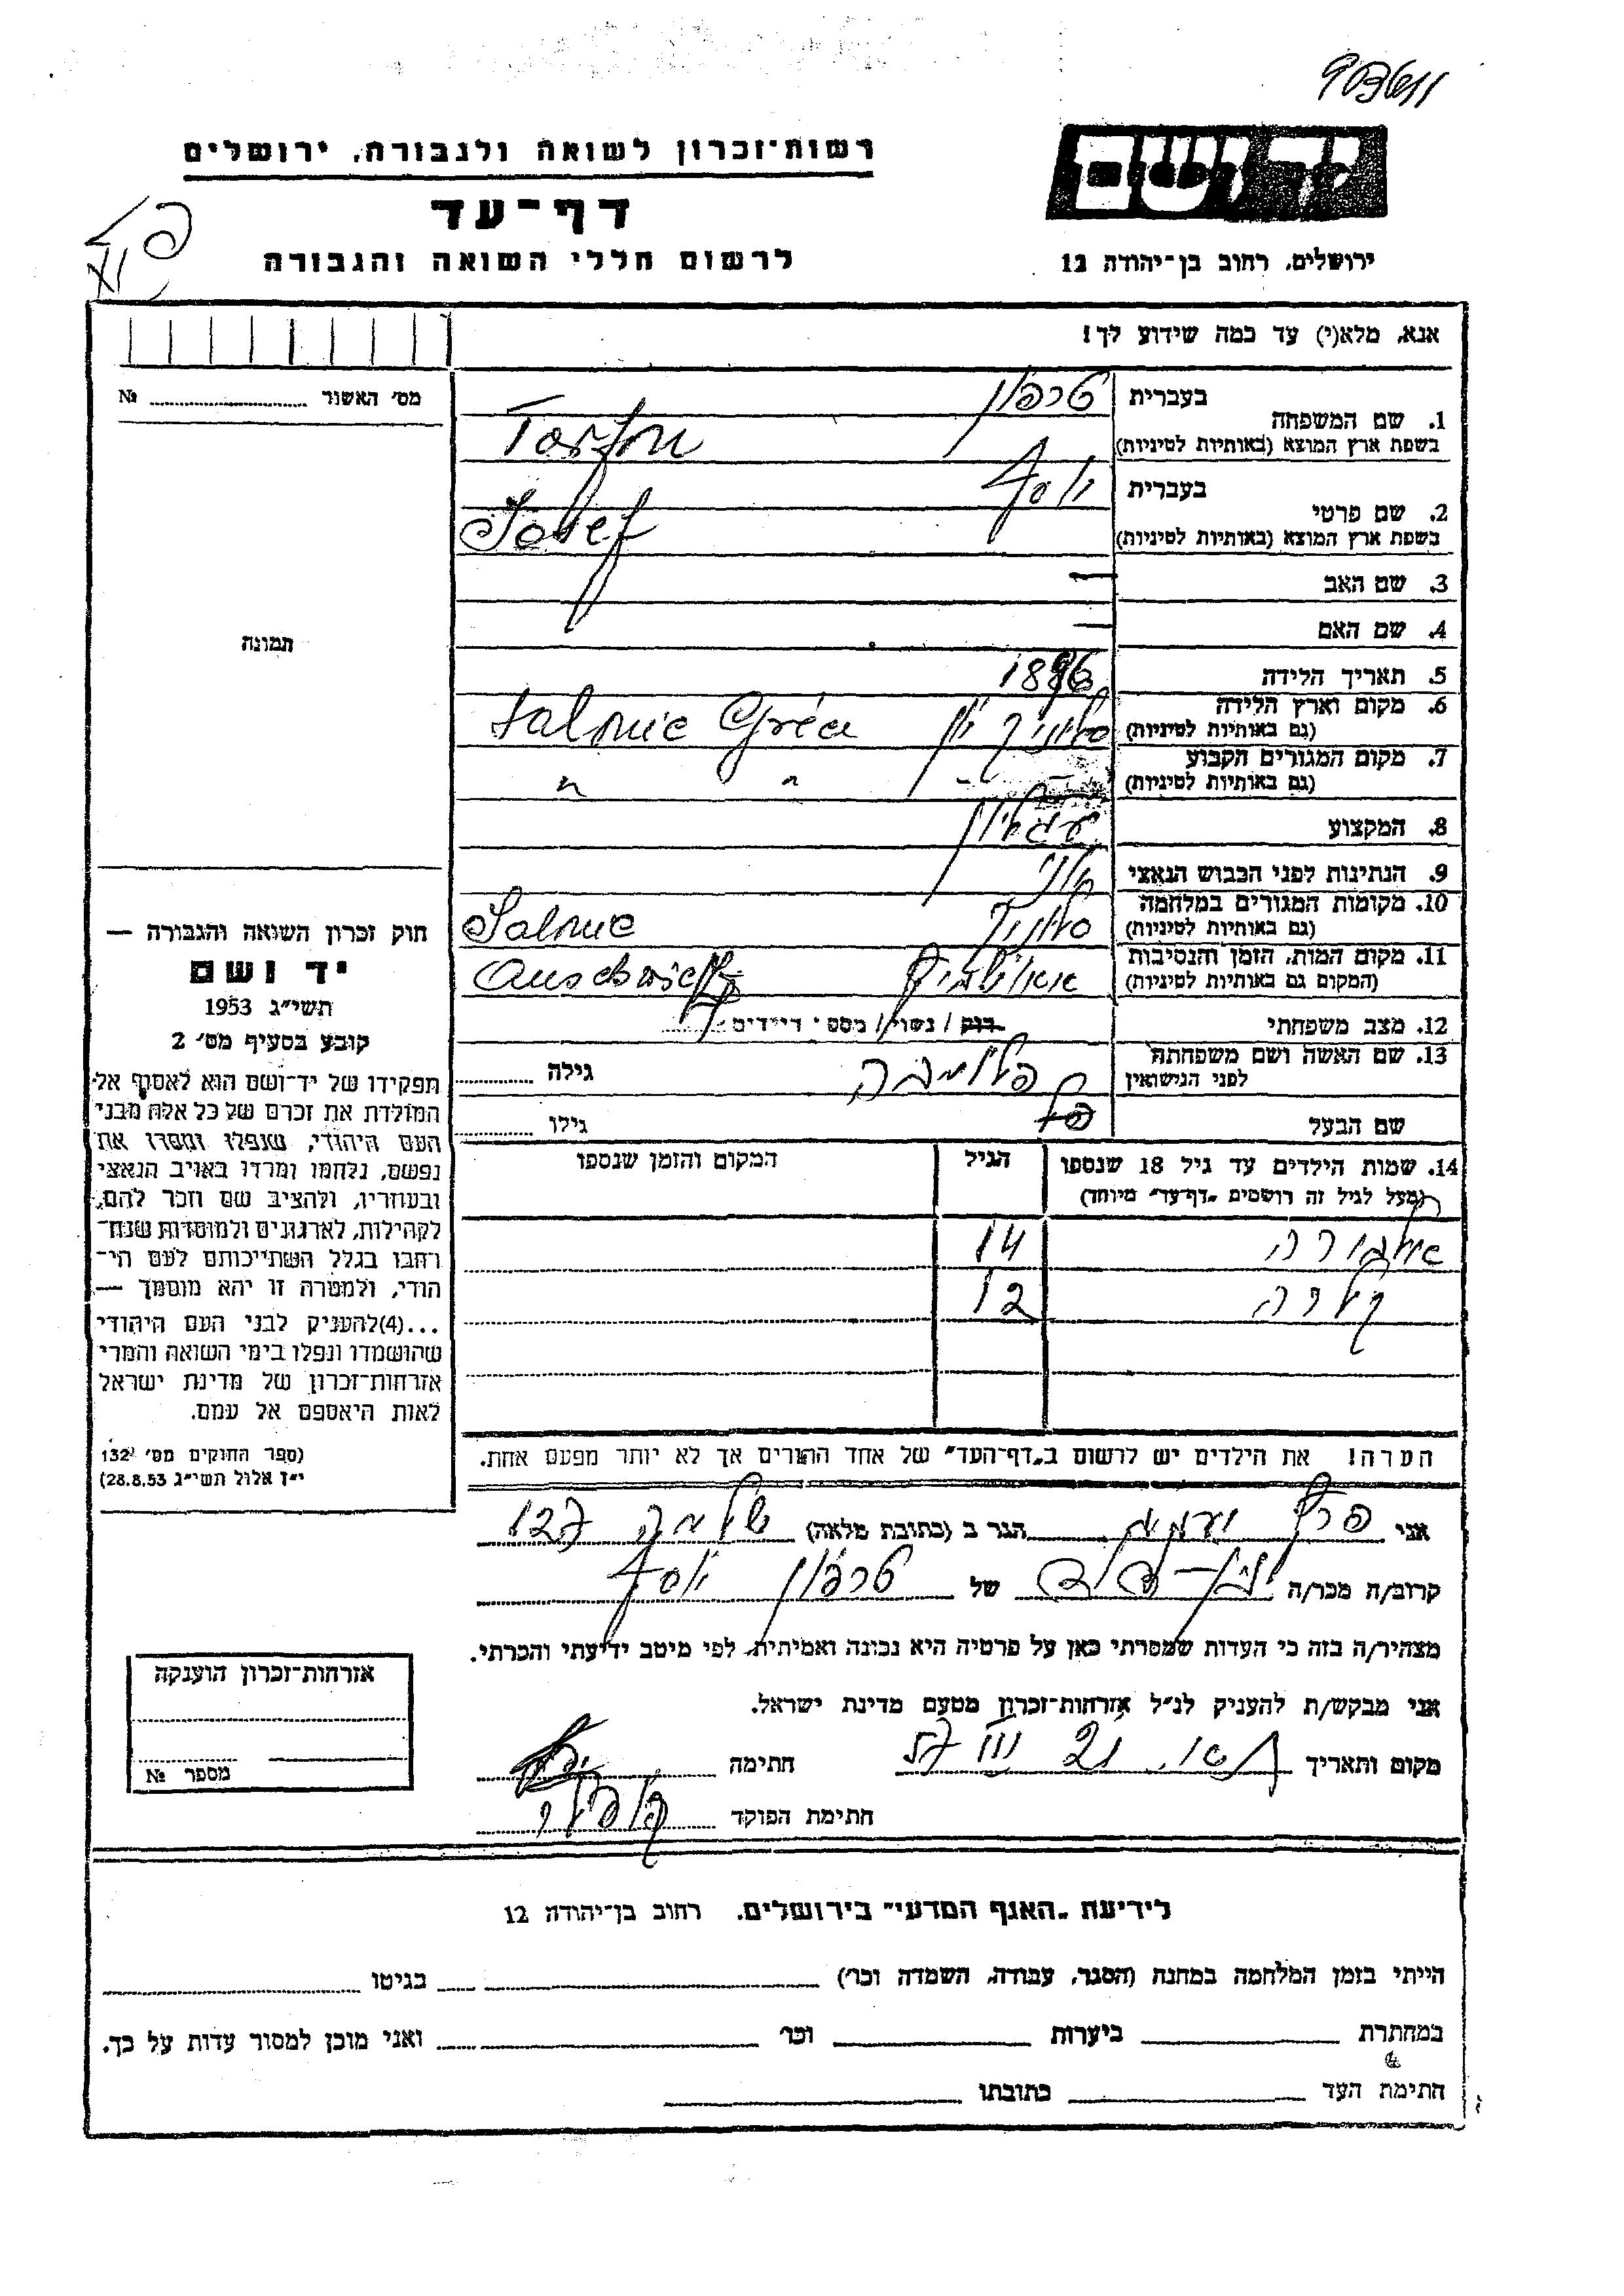 יד ושם
ירושלים, רחוב בן־יהודה 12
רשות־זכרון לשואה ולגבורה, ירושלים
דף־עד
לרשום חללי השואה והגבורה
אנא, מלא(י) עד כמה שידוע לך!
מס׳ האשור № ....................
תמונה
1. שם המשפחה
בעברית טרפון
בשפת ארץ המוצא (באותיות לטיניות) Tarfon
2. שם פרטי
בעברית יוסף
בשפת ארץ המוצא (באותיות לטיניות) Josef
3. שם האב —
4. שם האם —
5. תאריך הלידה
6. מקום וארץ הלידה
(גם באותיות לטיניות) סלוניק יון Salonic Gréce
7. מקום המגורים הקבוע
(גם באותיות לטיניות) " "
8. המקצוע
9. הנתינות לפני הכבוש הנאצי יוני
10. מקומות המגורים במלחמה
(גם באותיות לטיניות) סלוניק Salonic
11. מקום המות, הזמן והנסיבות
(המקום גם באותיות לטיניות) אאושויץ Auschwitz
12. מצב משפחתי רוק / נשוי / מספ׳ דיידים
13. שם האשה ושם משפחתה
לפני הנישואין גילה
שם הבעל גילו
14. שמות הילדים עד גיל 18 שנספו
(מעל לגיל זה רושמים „דף־עד" מיוחד)
הגיל
המקום והזמן שנספו
14
קלרה 12
הערה! את הילדים יש לרשום ב„דף־העד" של אחד ההורים אך לא יותר מפעם אחת.
חוק זכרון השואה והגבורה —
יד ושם
תשי״ג 1953
קובע בסעיף מס׳ 2
תפקידו של יד־ושם הוא לאסוף אל
המולדת את זכרם של כל אלה מבני
העם היהודי, שנפלו ומסרו את
נפשם, נלחמו ומרדו באויב הנאצי
ובעוזריו, ולהציב שם וזכר להם,
לקהילות, לארגונים ולמוסדות שנח־
רבו בגלל השתייכותם לעם הי־
הודי, ולמטרה זו יהא מוסמך —
...(4)להעניק לבני העם היהודי
שהושמדו ונפלו בימי השואה והמרי
אזרחות־זכרון של מדינת ישראל
לאות היאספם אל עמם.
(ספר החוקים מס׳ 132
י״ז אלול תשי״ג 28.8.53)
אני פרץ הגר ב (כתובת מלאה) שלמה 127
קרוב/ה מכר/ה של טרפון יוסף
מצהיר/ה בזה כי העדות שמסרתי כאן על פרטיה היא נכונה ואמיתית, לפי מיטב ידיעתי והכרתי.
אני מבקש/ת להעניק לנ״ל אזרחות־זכרון מטעם מדינת ישראל.
מקום ותאריך חתימה
חתימת הפוקד
אזרחות־זכרון הוענקה
מספר №
לידיעת „האגף המדעי" בירושלים, רחוב בן־יהודה 12
הייתי בזמן המלחמה במחנה (הסגר, עבודה, השמדה וכו׳) בגיטו
במחתרת ביערות וכו׳ ואני מוכן למסור עדות על כך.
חתימת העד כתובתו